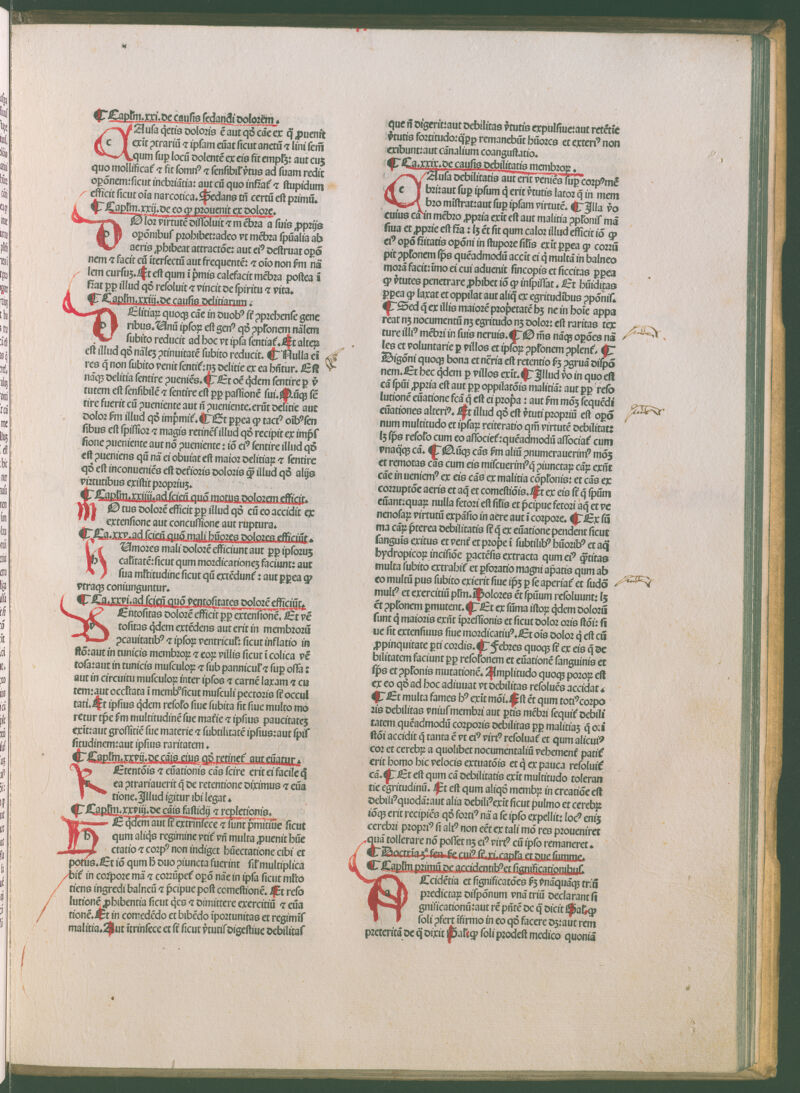 Caplm.xxi.de causis sedandi dolorem.
Ausa q̃etis doloris ẽ aut qđ cãe ex q̃ ꝓuenit
exit ꝯtrariũ ⁊ ipsam euat̃ sicut anetũ ⁊ lini sem̃
qum sup locũ dolentẽ ex eis fit emplꝫ: aut cuꝫ
quo mollificat̃ ⁊ fit somnꝰ ⁊ sensibił v̾tus ad suam redit
opõnem: sicut inebriãtia: aut cũ quo infiat̃ ⁊ stupidum
efficit̃ sicut oĩa narcotica. Sedans tñ certũ est primũ.
Caplm.xxij.de eo q̃ ꝓuenit ex dolore.
Olor virtutẽ dissoluit ⁊ mẽbra a suis ꝓprijs
opõnibus ꝓhibet: adeo vt mẽbra spũalia ab
aeris ꝓhibeat attractõe: aut eiꝰ destruat opõ
nem ⁊ facit eũ itersectũ aut frequentẽ: ⁊ oĩo non s̃m nã
lem cursuꝫ. Et est qum i pmis calefacit mẽbra postea i
fiat pp illud qđ resoluit ⁊ vincit de spiritu ⁊ vita.
Caplm.xxiij.de causis delitiarum.
Elitiaꝝ quoqꝫ cãe in duobꝰ st̃ ꝯprehense gene
ribus. Unũ ipsoꝝ est genꝰ qđ ꝯplonem nãlem
subito reducit ad hoc vt ipsa sentiat̃. Et alterꝝ
est illud qđ nãleꝫ ꝯtinuitatẽ subito reducit. Nulla eĩ
res q̃ non subito venit sentit̃: nꝫ delitie ex ea hñtur. Est
nãqꝫ delitia sentire ꝯueniẽs. Et oẽ q̃dem sentire p v̾
tutem est sensibilẽ ⁊ sentire est pp passionẽ sui. Uñqꝫ sẽ
tire fuerit cũ ꝯueniente aut ñ ꝯueniente. erũt delitie aut
dolor s̃m illud qđ imp̃mit̃. Et ppea q̃ tactꝰ oibꝰ sen
sibus est spissior ⁊ magis retinet̃ illud qđ recipit ex imp̃s
sione ꝯueniente aut nõ ꝯueniente: iõ eiꝰ sentire illud qđ
est ꝯueniens qũ nã ei obuiat est maior delitiaꝝ ⁊ sentire
qđ est inconueniẽs est deterioris doloris q̃ illud qđ alijs
virtutibus existit propriuꝫ.
Caplm.xxiiij.ad sciẽũ quõ motus dolorem efficit.
Otus dolorẽ efficit pp illud qđ cũ eo accidit ex
extensione aut concussione aut ruptura.
Ca.xxv.ad sciẽũ quõ mali hũores dolores efficiũt.
Umores mali dolorẽ efficiunt aut pp ipsoruꝫ
q̃litatẽ: sicut qum mordicationeꝫ faciunt: aut
sua m̃ltitudine sicut qũ extẽdunt̃: aut ppea q̃
vtraqꝫ coniunguntur.
Ca.xxvi.ad sciẽũ quõ vẽtositates dolorẽ efficiũt.
Entositas dolorẽ efficit pp extensionẽ. Et vẽ
tositas q̃dem extẽdens aut erit in membroꝝ
ꝯcauitatibꝰ ⁊ ipsoꝝ ventriculꝰ: sicut inflatio in
stõ: aut in tunicis membroꝝ ⁊ eoꝝ villis sicut i colica vẽ
tosa: aut in tunicis musculoꝝ ⁊ sub pannicul̃ ⁊ sup ossa:
aut in circuitu musculoꝝ inter ipsos ⁊ carnẽ laxam ⁊ cu
tem: aut occltata i membꝰ sicut musculi pectoris st̃ occul
tati. Et ipsius q̃dem resolo siue subita fit siue multo mo
retur tpe s̃m multitudinẽ sue mat̃ie ⁊ ipsius paucitateꝫ
exit: aut grossitiẽ sue materie ⁊ subtilitatẽ ipsius: aut spis
situdinem: aut ipsius raritatem.
Caplm.xxvij.de cãis eius qđ retinet̃ aut euãtur.
Etentõis ⁊ euãtionis cãs scire erit ei facile q̃
ea ꝯtrariauerit q̃ de retentione diximus ⁊ euã
tione. Illud igitur ibi legat.
Caplm.xxviij.de cãis fastidij ⁊ repletionis.
E q̃dem aut st̃ extrinsece ⁊ sunt p̃mitiue sicut
qum aliq̃s regimine vtit̃ vñ multa ꝓuenit hũe
ctatio ⁊ corpꝰ non indiget hũectatione cibi et
potus. Et iõ qum h̃ duo ꝯiuncta fuerint sil̃ multiplica
bit̃ in corpore mã ⁊ corrũpet̃ opõ nãe in ipsa sicut m̃lto
tiens ingredi balneũ ⁊ p̃cipue post comestionẽ. Et reso
lutionẽ ꝓhibentia sicut q̃es ⁊ dimittere exercitiũ ⁊ euã
tionẽ. Et in comedẽdo et bibẽdo iportunitas et regimis̃
malitia. Aut itrinsece et st̃ sicut v̾tutis digestiue debilitas
que ñ digerit: aut debilitas v̾tutis expulsiue: aut retẽtie
v̾tutis fortitudo: q̃ꝓp remanebũt hũores et exterẽ non
exibunt: aut canalium coangustatio.
Ca.xxix.de causis debilitatis membroꝝ.
Ausa debilitatis aut erit veniẽs sup corpꝰ mẽ
bri: aut sup ipsum q̃ erit v̾tutis lator q̃ in mem
bro mĩstrat: aut sup ipsam virtutẽ. Illa v̾o
cuius cã in mẽbro ꝓpria exit est aut malitia ꝯplonis̃ mã
siua et ꝓprie est fr̃ia: lꝫ ẽt fit qum calor illud efficit iõ q̃
eiꝰ opõ fr̃itatis opõni in stupore sil̃is exit ppea q̃ corrũ
pit ꝯplonem sp̃s quẽadmodũ accit ei q̃ multã in balneo
morã facit: ĩmo ei cui aduenit sincopis et siccitas ppea
q̃ v̾tutes penetrare ꝓhibet iõ q̃ inspissat. Et hũiditas
ppea q̃ laxat et oppilat aut aliq̃ ex egritudibus ꝯpõnis̃.
Sed q̃ ex illis maiorẽ ꝓpetatẽ hꝫ ne in hoĩe appa
reat nꝫ nocumentũ nꝫ egritudo nꝫ dolor: est raritas tex
ture illiꝰ mẽbri in suis neruis. Om̃s nãqꝫ opões nã
les et voluntarie p villos et ipsoꝝ ꝯplonem ꝯplent̃.
Digõni quoqꝫ bona et nẽria est retentio sꝫ ꝯgruã dispõ
nem. Et hec q̃dem p villos exit. Illud v̾o in quo est
cã sp̃ui ꝓpria est aut pp oppilatõis malitiã: aut pp reso
lutionẽ euãtione scã q̃ est ei propa: aut s̃m moꝫ sequẽdi
euãtiones alteriꝰ. Et illud qđ est v̾tuti propriũ est opõ
num multitudo et ipsaꝝ reiteratio qm̃ virtutẽ debilitat:
lꝫ sp̃s resolo cum eo associet̃: quẽadmodũ associat̃ cum
vnaqꝫꝫ cã. Ouqꝫ cãs s̃m aliũ ꝯnumerauerimꝰ moꝫ
et remotas cãs cum eis miscuerimꝰ q̃ ꝯiunctaꝝ cãꝝ exñt
cãe in ueniemꝰ ex eis cãs ex malitia cõplonis: et cãs ex
corruptõe aeris et aq̃ et comestiõis. Et ex eis st̃ q̃ sp̃um
euãnt: quaꝝ nulla fetori est sil̃is et p̃cipue fetori aq̃ et ve
nenosaꝝ virtutũ expãsio in aere aut i corpore. Ex sũ
ma cãꝝ p̃terea debilitatis st̃ q̃ ex euãtione pendent sicut
sanguis exitus et vent̃ et prope i subtilibꝰ hũoribꝰ et aq̃
hydropicoꝝ incisiõe pactẽsis extracta qum eiꝰ q̃titas
multa subito extrahit̃ et pforatio magni ap̃atis qum ab
eo multũ pus subito exierit siue ipꝫ p se aperiat̃ et sudõ
mulꝰ et exercitiũ plm̃. Dolores ẽt sp̃uum resoluunt: lꝫ
ẽt ꝯplonem p̃mutent. Et ex sũma istoꝝ q̃dem dolorũ
sunt q̃ maioris exñt ip̃ressionis et sicut dolor oris stõi: si
ue sit extensiuus siue mordicatiuꝰ. Et ois dolor q̃ est cũ
ꝓpinquitate pti cordis. Febres quoqꝫ st̃ ex eis q̃ de
bilitatem faciunt pp resolonem et euãtionẽ sanguinis et
sp̃s et ꝯplonis mutationẽ. Amplitudo quoqꝫ poroꝝ est
ex eo qđ ad hoc adiuuat vt debilitas resoluẽs accidat.
Et multa fames hꝰ exit mõi. Est ẽt qum totꝰ corpo
ris debilitas vniuꝰ membri aut ptis mẽbri sequit̃ debili
tatem quẽadmodũ corporis debilitas pp malitiaꝫ q̃ oi
stõi accidit q̃ tanta ẽ vt eiꝰ vir̃ꝰ resoluat̃ et qum alicuiꝰ
cor et cerebꝝ a quolibet nocumentaliũ vehement̃ patit̃
erit homo hic velocis extuatõis et q̃ ex pauca resoluit̃
cã. Et est qum cã debilitatis exit multitudo toleran
tie egritudinũ. Et est qum aliqđ membꝝ in creatiõe est
debilꝰ quodã: aut alia debilꝰ exit sicut pulmo et cerebꝝ
iõqꝫ erit recipiẽs qđ fortiꝰ nã a se ipso expellit: locꝰ eniꝫ
cerebri propriꝰ si altꝰ non eẽt ex tali mõ res proueniret
quã tollerare nõ posset nꝫ eiꝰ vir̃ꝰ cũ ipso remaneret.
Doctria sẽn se cuiꝰ st̃ xi. capla et due summe.
Caplm primũ de accidentibꝰ et significationibuꝫ.
Ccidẽtia et significatões sꝫ vnãquãqꝫ triũ
predictaꝝ dispõnum vnã triũ declarant si
gnificationũ: aut rẽ p̃ñtẽ de q̃ dicit Gal. q̃
soli ꝯfert ifirmo in eo qđ facere dꝫ: aut rem
preteritã de q̃ dixit Gal. q̃ soli prodest medico quoniã